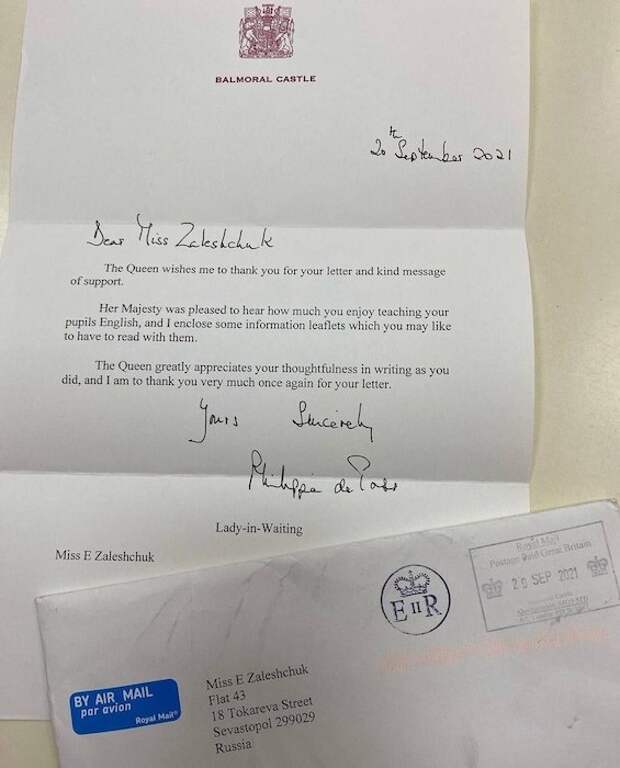 BALMORAL CASTLE
20th September 2021
Dear Miss Zaleshchuk
The Queen wishes me to thank you for your letter and kind message
of support.
Her Majesty was pleased to hear how much you enjoy teaching your
pupils English, and I enclose some information leaflets which you may like
to have to read with them.
The Queen greatly appreciates your thoughtfulness in writing as you
did, and I am to thank you very much once again for your letter.
Yours Sincerely
Philippa de
Lady-in-Waiting
Miss E Zaleshchuk
Royal Mail
Postage Paid Great Britain
20 SEP 2021
E II R
BY AIR MAIL
par avion
Royal Mail
Miss E Zaleshchuk
Flat 43
18 Tokareva Street
Sevastopol 299029
Russia